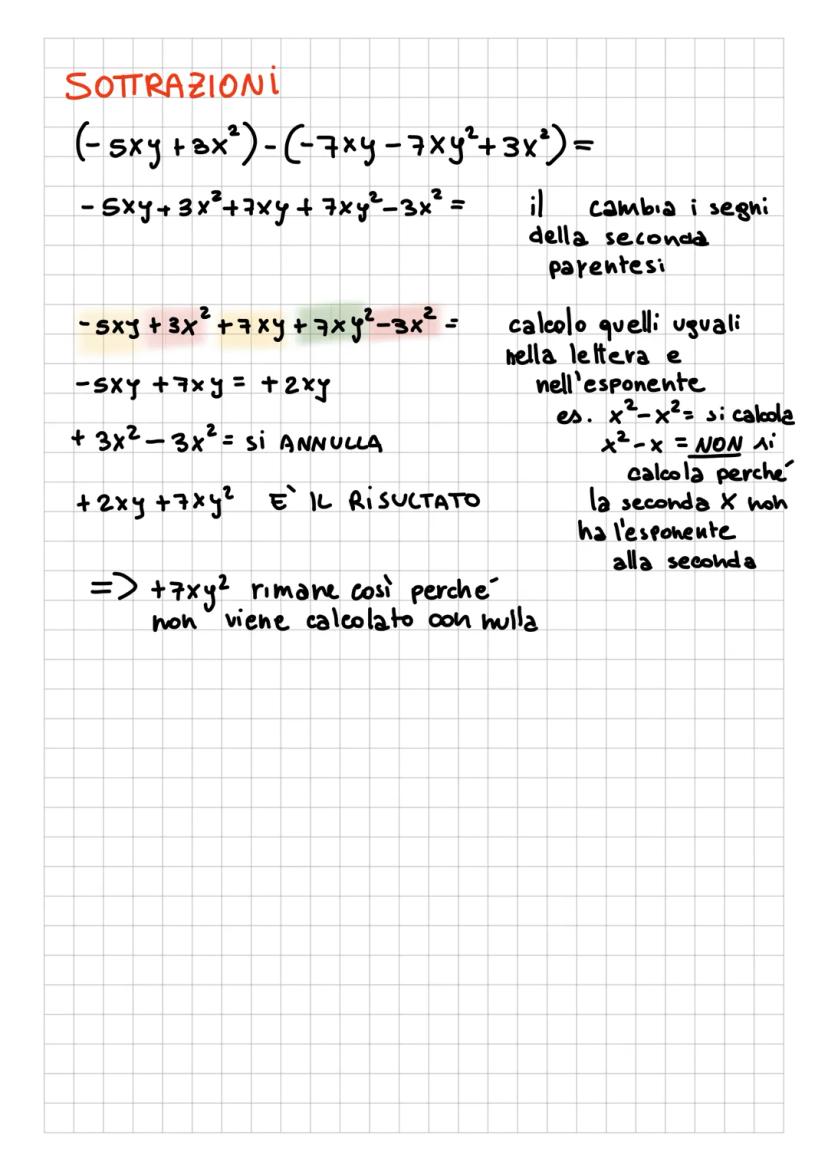 SOTTRAZIONI
(-5xy+3x²)-(-7xy-7xy²+3x²)=
-5xy+3x²+7xy+7xy²-3x²=
il cambia i segni
della seconda
parentesi
-5xy+3x²+7xy+7xy²-3x²=
calcolo quelli uguali
nella lettera e
nell'esponente
es. x²-x²= si calcola
x²-x = NON si
calcola perché
la seconda X non
ha l'esponente
alla seconda
-5xy+7xy=+2xy
+3x²-3x²= Si ANNULLA
+2xy+7xy² E' IL RISULTATO
=> +7xy² rimane così perché
non viene calcolato con nulla